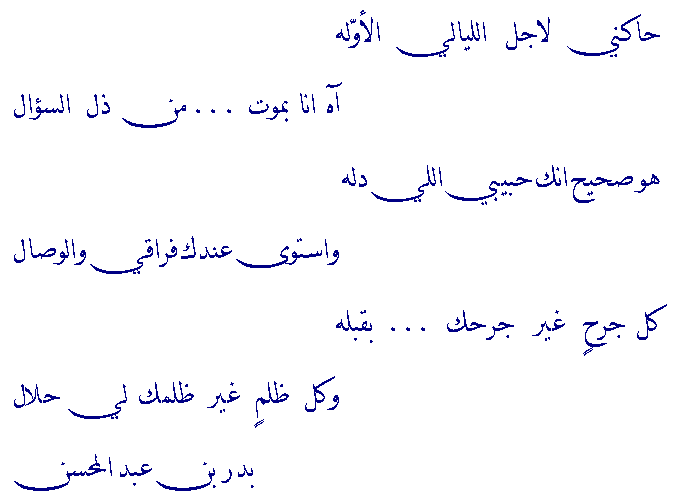 حاكني لاجل الليالي الأوّله
آه انا بموت ... من ذل السؤال
هو صحيح انك حبيبي اللي دله
واستوى عندك فراقي والوصال
كل جرحٍ غير جرحك ... بقبله
وكل ظلمٍ غير ظلمك لي حلال
بدر بن عبد المحسن